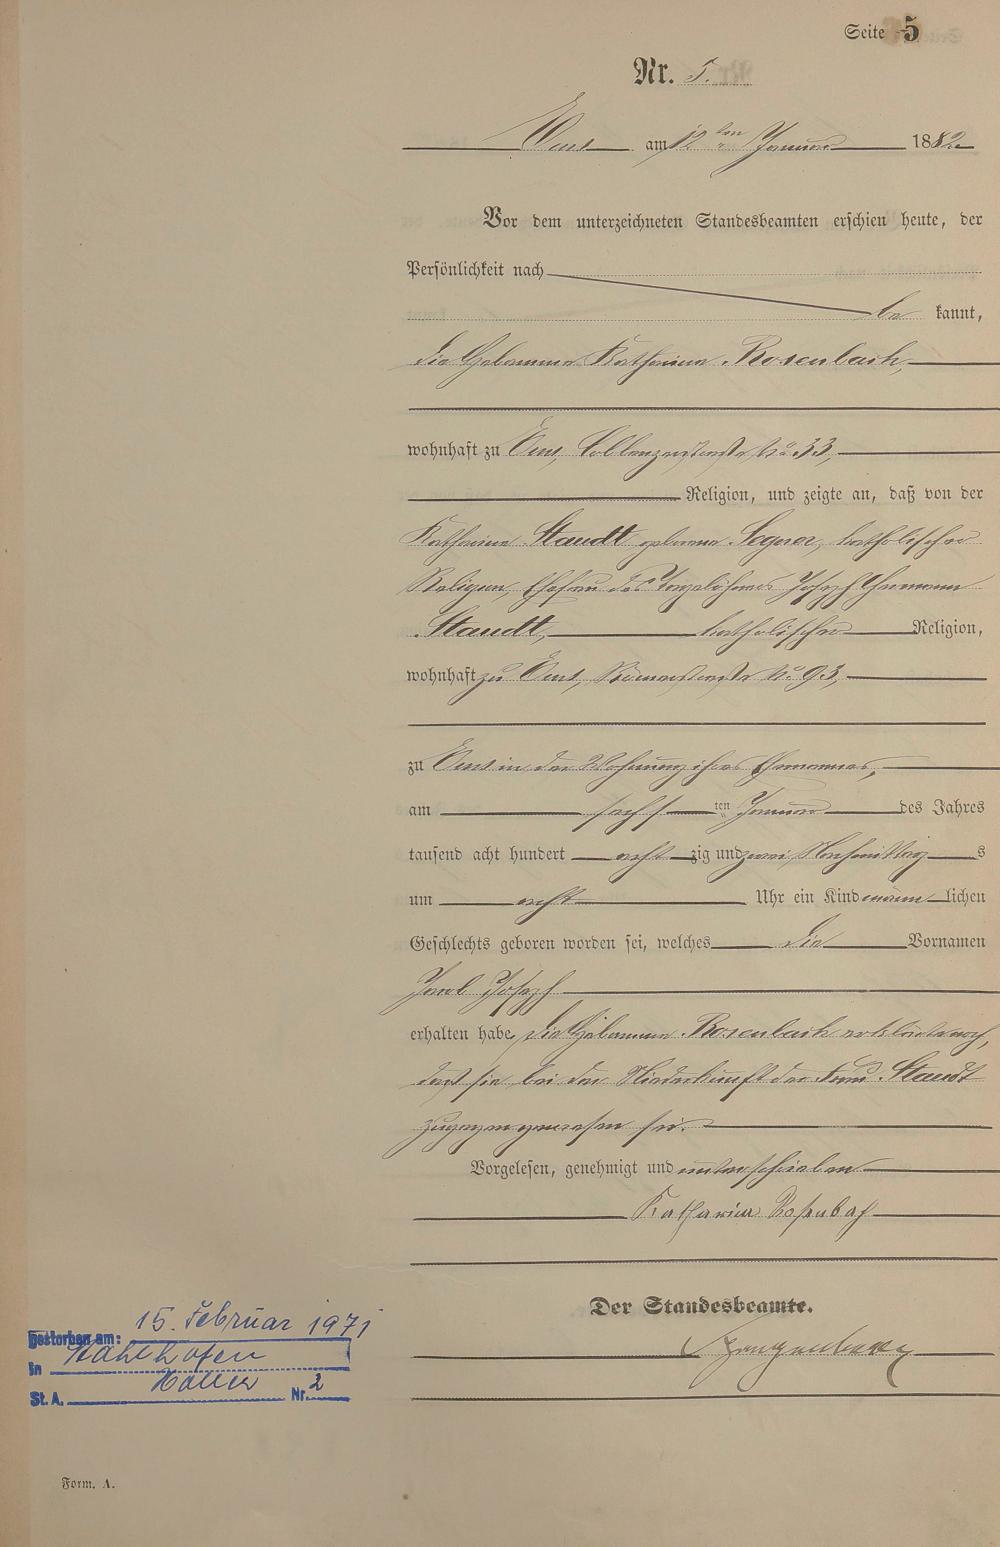 Seite 5
Nr. 5.
Ems am 12ten Januar 1882
Vor dem unterzeichneten Standesbeamten erschien heute, der
Persönlichkeit nach
be kannt,
die Hebamme Katharina Rosenbach,
wohnhaft zu Ems, Coblenzerstraße No 33,
Religion, und zeigte an, daß von der
Katharina Staudt geborene Segner, katholischer
Religion, Ehefrau des Tagelöhners Joseph Hermann
Staudt, katholischer Religion,
wohnhaft zu Ems, Römerstraße No 93,
zu Ems in der Wohnung ihres Ehemannes,
am sechs ten Januar des Jahres
tausend acht hundert acht zig und zwei Nachmittag s
um acht Uhr ein Kind männ lichen
Geschlechts geboren worden sei, welches die Vornamen
Joseph
erhalten habe. Die Hebamme Rosenbach erklärte noch,
daß sie bei der Niederkunft der Frau Staudt
zugegen gewesen sei.
Vorgelesen, genehmigt und unterschrieben
Katharina Rosenbach
Der Standesbeamte.
gestorben am: 15. Februar 1971
in
St. A. Nr. 2
Form. A.